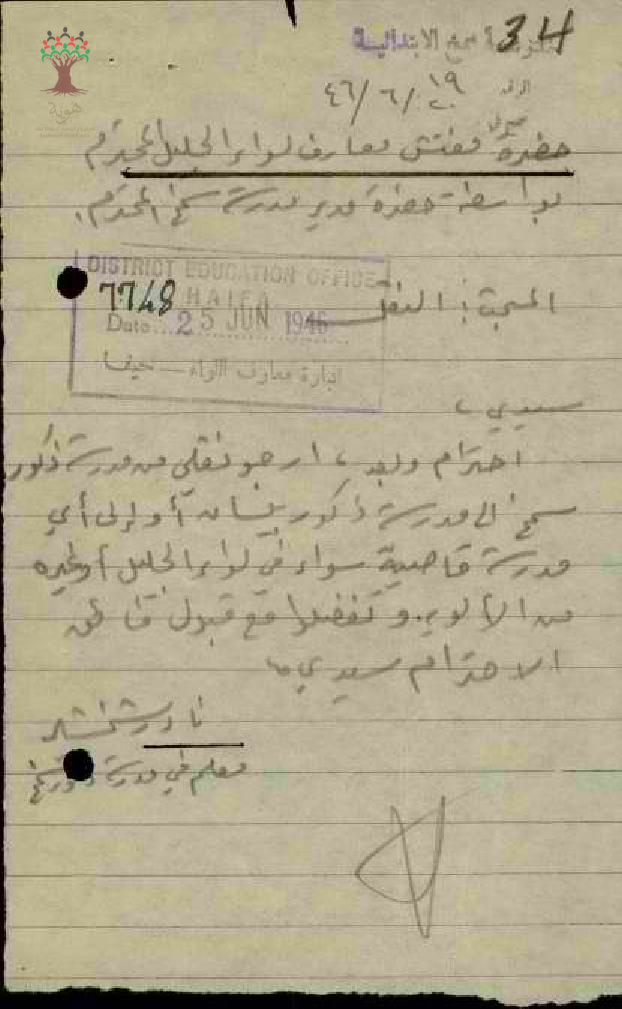 34
مدرسة سمخ الابتدائية
الرقم ١٩
٢٠/٦/٤٦
حضرة مفتش معارف لواء الجليل المحترم
بواسطة حضرة مدير مدرسة سمخ المحترم
DISTRICT EDUCATION OFFICE
HAIFA
7748
Date 25 JUN 1946
ادارة معارف اللواء - حيفا
المبحث: النقل
سيدي،
احترام وبعد، ارجو نقلي من مدرسة ذكور
سمخ الى مدرسة ذكور بيسان أو إلى أي
مدرسة قاصية سواء في لواء الجليل أو غيره
من الألوية. وتفضلوا مع قبول فائق
الاحترام سيدي
نادر
معلم في مدرسة ذكور سمخ
هوية